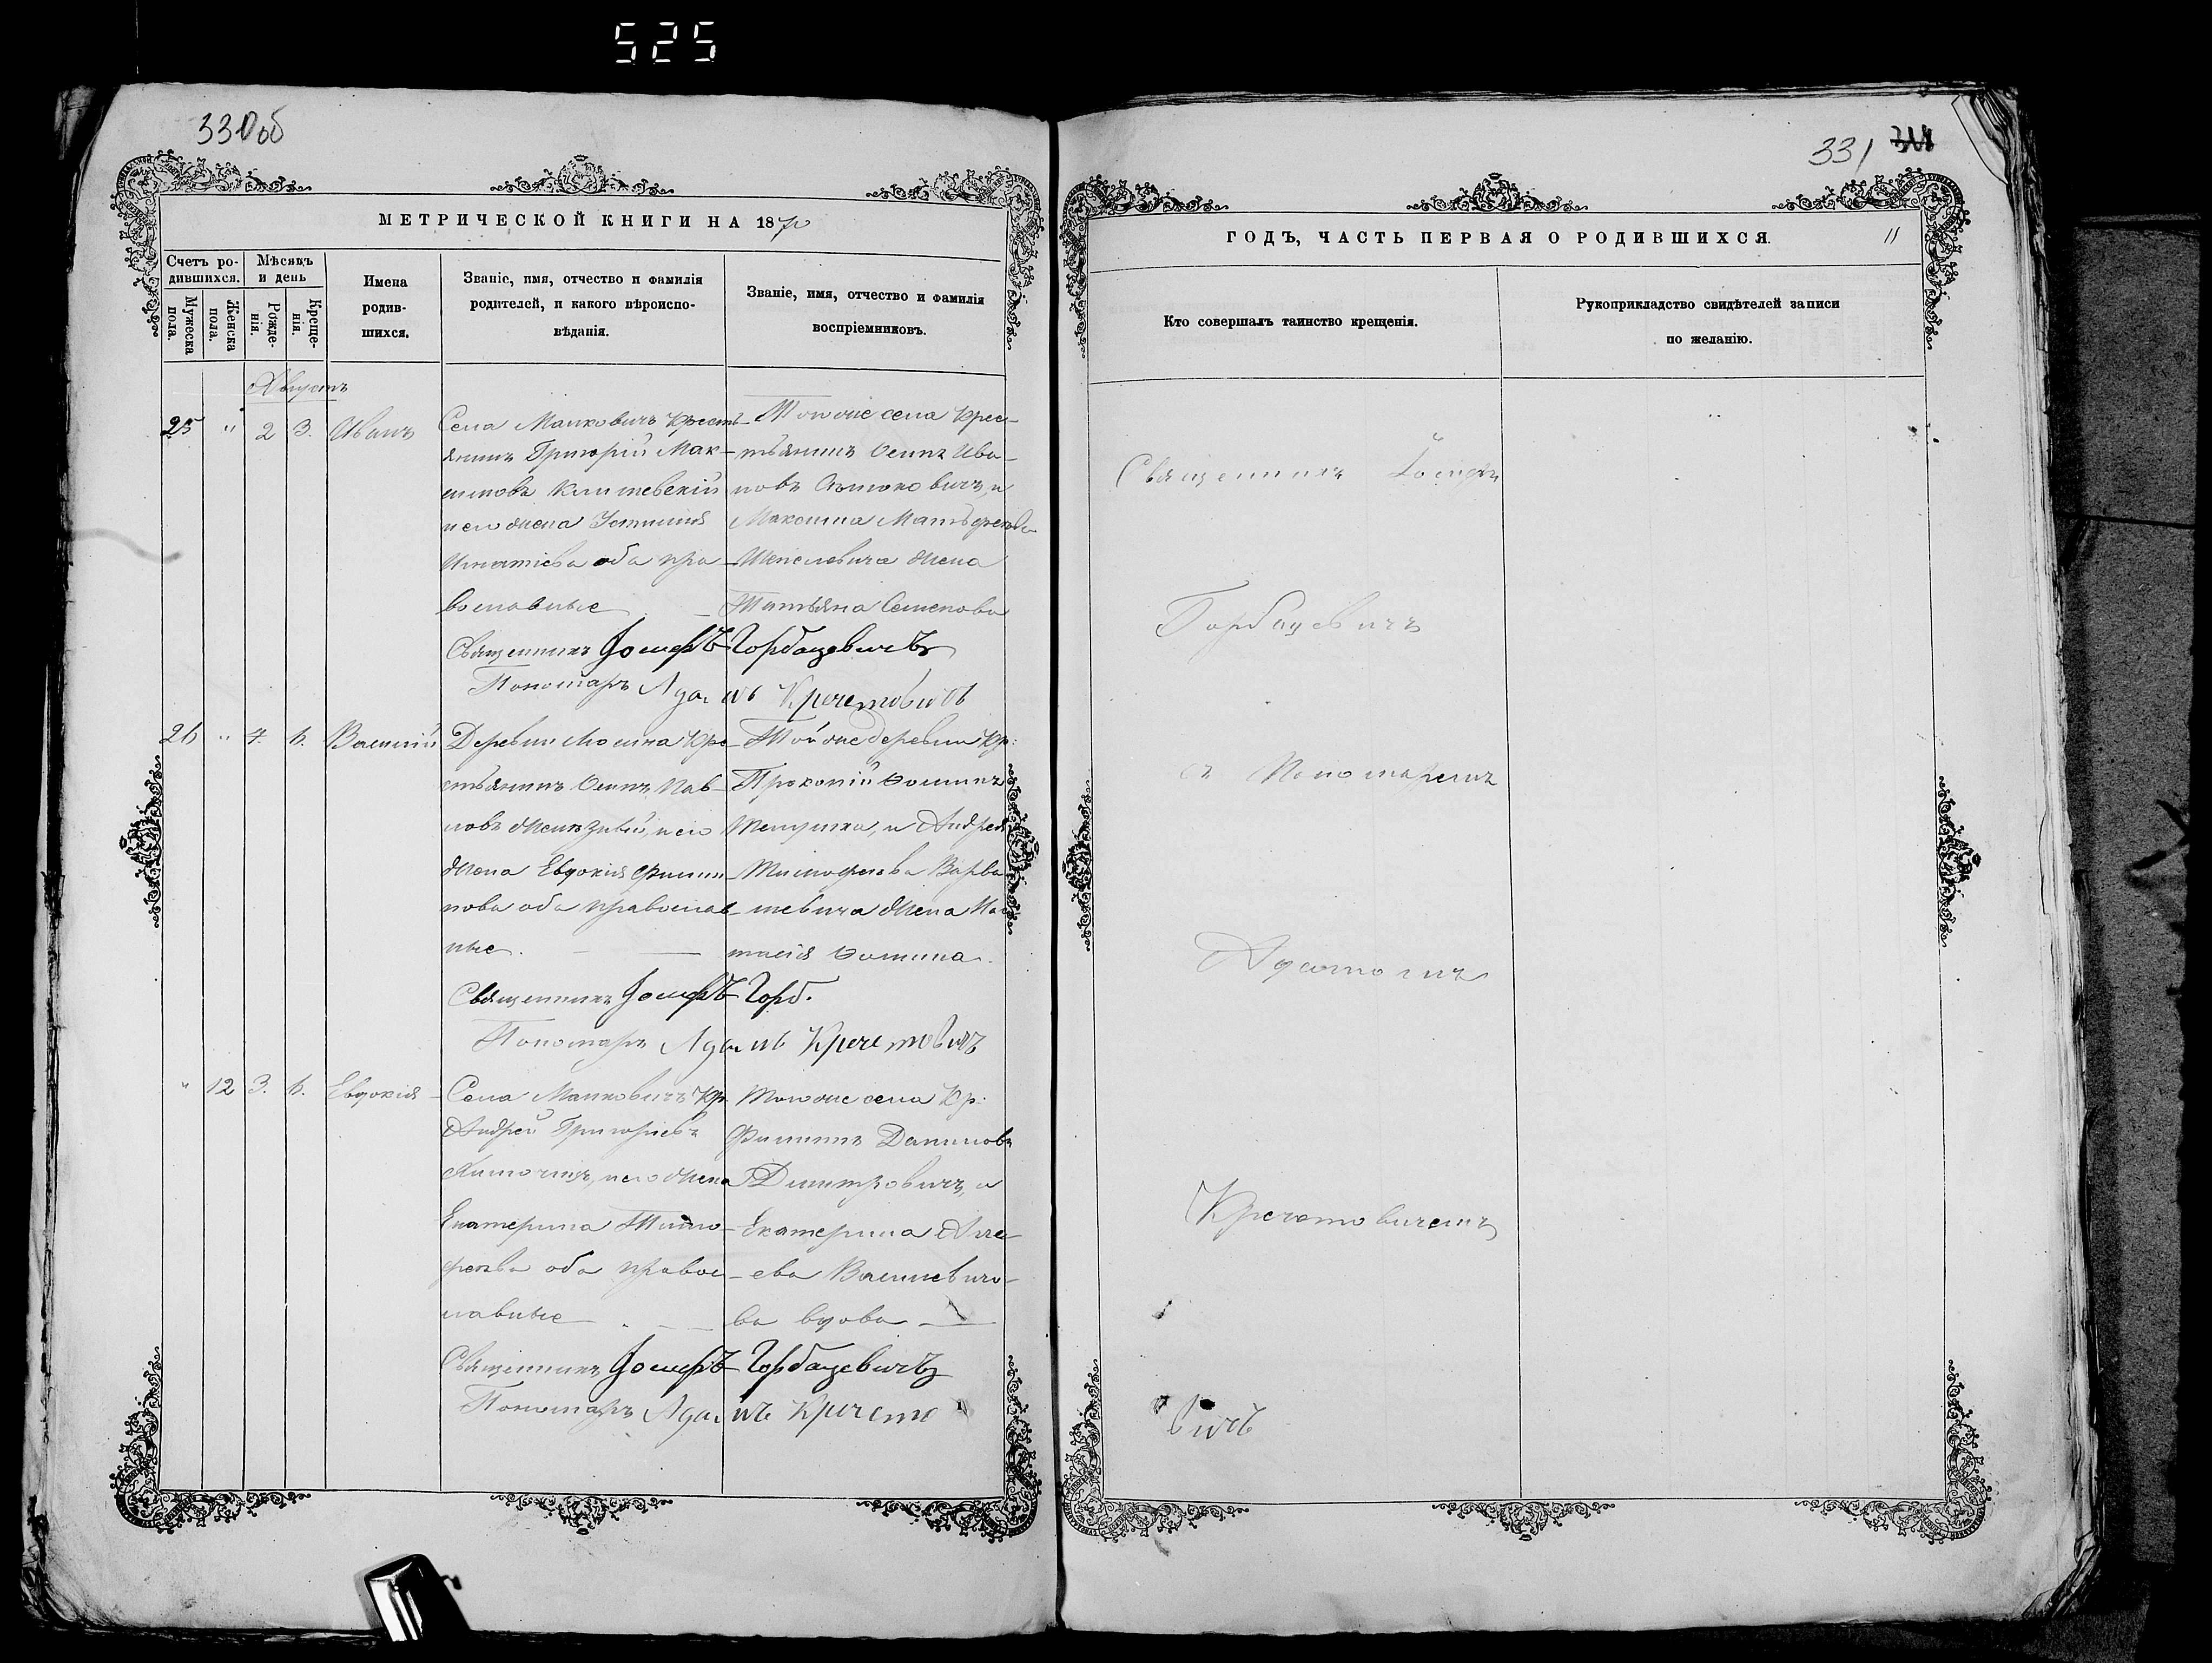 525
330об
МЕТРИЧЕСКОЙ КНИГИ НА 1870
Счетъ ро-
дившихся.
Мѣсяцъ
и день
Мужеска
пола.
Женска
пола.
Рожде-
нія.
Креще-
нія.
Имена
родив-
шихся.
Званіе, имя, отчество и фамилія
родителей, и какого вѣроиспо-
вѣданія.
Званіе, имя, отчество и фамилія
воспріемниковъ.
Августъ
25 " 2 3. Иванъ
Села Малковичъ крестъ-
янинъ Григорій Мак-
симовъ
и его жена Устинія
Игнатіева оба пра-
вославные
Тогоже села крес-
тьянинъ Осипъ Ива-
новъ и
Максима
жена
Татьяна Семенова
Священникъ Іосифъ Горбацевичъ
Пономарь Адамъ Кречетовичъ
26 " 4. 6. Василій
Деревни кре-
стьянинъ Осипъ Пав-
ловъ и его
жена Евдокія Филип-
пова оба православ-
ные.
Той же деревни Кр:
Прокопій Фоминъ
и Андрея
Тимофеева Варва-
шевича жена Нас-
тасія Фомина.
Священникъ Іосифъ Горб.
Пономарь Адамъ Кречетовичъ
" 12 3. 6. Евдокія
Села Малковичъ Кр.
Андрей Григорьевъ
и его жена
Екатерина Тимо-
феева оба правос-
лавные
Тогоже села Кр.
Филиппъ Даниловъ
Димитровичъ, и
Екатерина Алек-
ева Василевичо-
ва вдова
Священникъ Іосифъ Горбацевичъ
Пономарь Адамъ Кречето
331
ГОДЪ, ЧАСТЬ ПЕРВАЯ О РОДИВШИХСЯ.
11
Кто совершалъ таинство крещенія.
Рукоприкладство свидѣтелей записи
по желанію.
Священникъ Іосифъ
Горбацевичъ
съ Пономаремъ
Адамомъ
Кречетовичемъ
вичъ